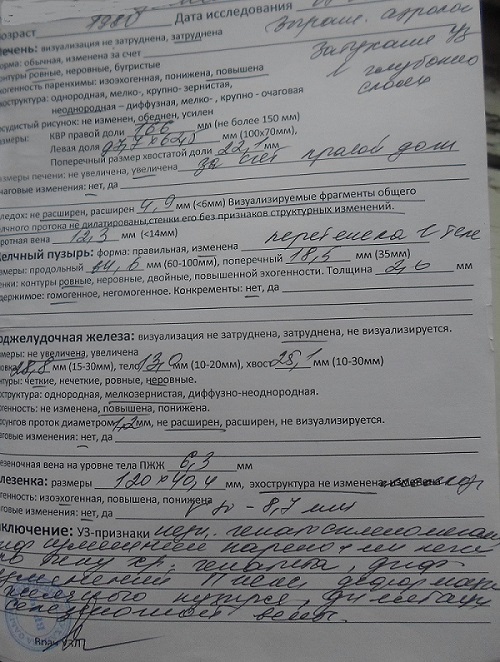 озраст 1980 Дата исследования
ечень: визуализация не затруднена, затруднена
орма: обычная, изменена за счет
онтуры ровные, неровные, бугристые
огенность паренхимы: изоэхогенная, понижена, повышена
Затухание УЗ
в глубоких
слоях
оструктура: однородная, мелко-, крупно- зернистая,
неоднородная – диффузная, мелко- , крупно - очаговая
удистый рисунок: не изменен, обеднен, усилен
меры: КВР правой доли 166 мм (не более 150 мм)
Левая доля мм (100х70мм),
Поперечный размер хвостатой доли 22,1 мм
азмеры печени: не увеличена, увеличена за счет правой доли
чаговые изменения: нет, да
ледох: не расширен, расширен 4,9 мм (<6мм) Визуализируемые фрагменты общего
лчного протока не дилатированы,стенки его без признаков структурных изменений.
ротная вена 12,3 мм (<14мм)
елчный пузырь: форма: правильная, изменена перетяжка в теле
змеры: продольный мм (60-100мм), поперечный 18,5 мм (35мм)
енки: контуры ровные, неровные, двойные, повышенной эхогенности. Толщина 2,6 мм
держимое: гомогенное, негомогенное. Конкременты: нет, да
оджелудочная железа: визуализация не затруднена, затруднена, не визуализируется.
меры: не увеличена, увеличена
овка 28,8 мм (15-30мм), тело 13,0 мм (10-20мм), хвост 25,1 мм (10-30мм)
нтуры: четкие, нечеткие, ровные, неровные.
оструктура: однородная, мелкозернистая, диффузно-неоднородная.
генность: не изменена, повышена, понижена.
сунгов проток диаметром 1,2 мм, не расширен, расширен, не визуализируется.
аговые изменения: нет, да
езеночная вена на уровне тела ПЖЖ 6,3 мм
лезенка: размеры 120х40,4 мм, эхоструктура не изменена
генность: изоэхогенная, повышена, понижена
аговые изменения: нет, да - 8,7 мм
аключение: УЗ-признаки
диф изменений паренхимы печени
по типу хр. гепатита, диф
изменений П/жел, деформации
желчного пузыря, дилатации
селезеночной вены.
Врач УЗД